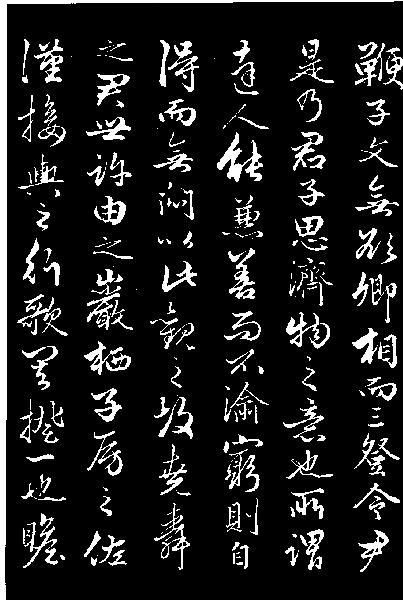 鞭子文無欲卿相而三登令尹
是乃君子思濟物之意也所謂
達人能兼善而不渝窮則自
得而無悶以此觀之故堯舜
之君世許由之巖栖子房之佐
漢接輿之行歌其揆一也瞻